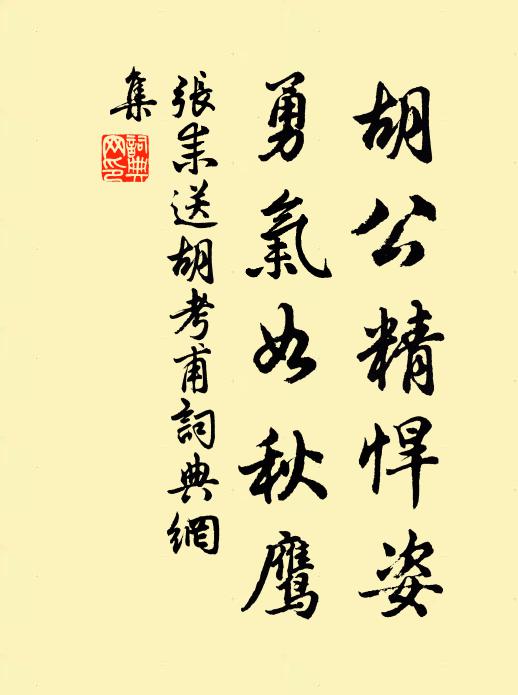 胡公精悍姿
勇氣如秋鷹
張耒送胡考甫詞典網
集
詞典
网印